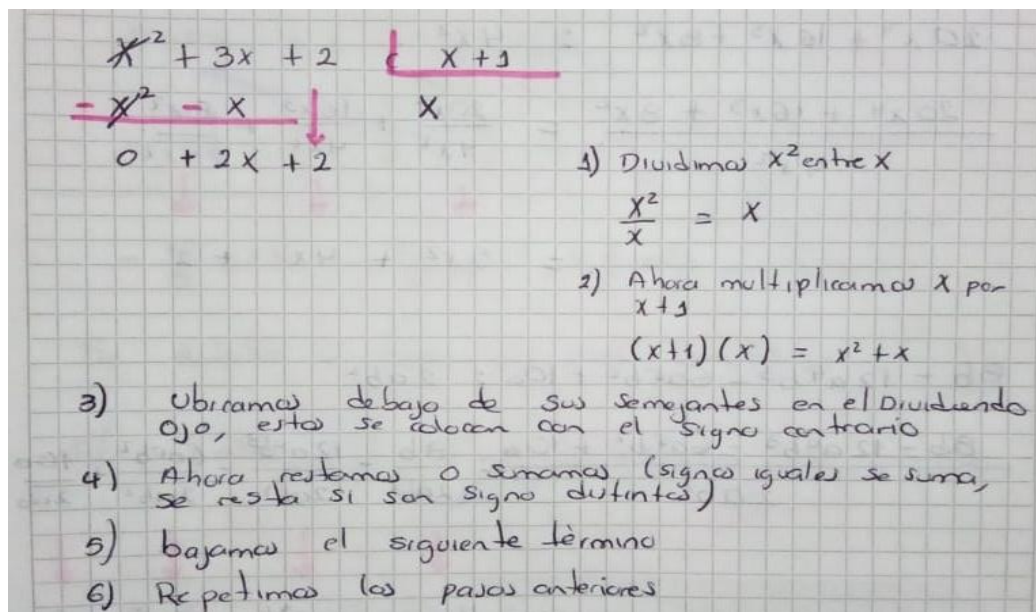 x² + 3x + 2 x + 1
- x² - x x
0 + 2x + 2
1) Dividimos x² entre x
x²/x = x
2) Ahora multiplicamos x por
x + 1
(x+1)(x) = x² + x
3) Ubicamos debajo de sus semejantes en el Dividiendo
Ojo, estos se colocan con el signo contrario
4) Ahora restamos o sumamos (signos iguales se suma,
se resta si son signo distintos)
5) bajamos el siguiente tèrmino
6) Repetimos los pasos anteriores